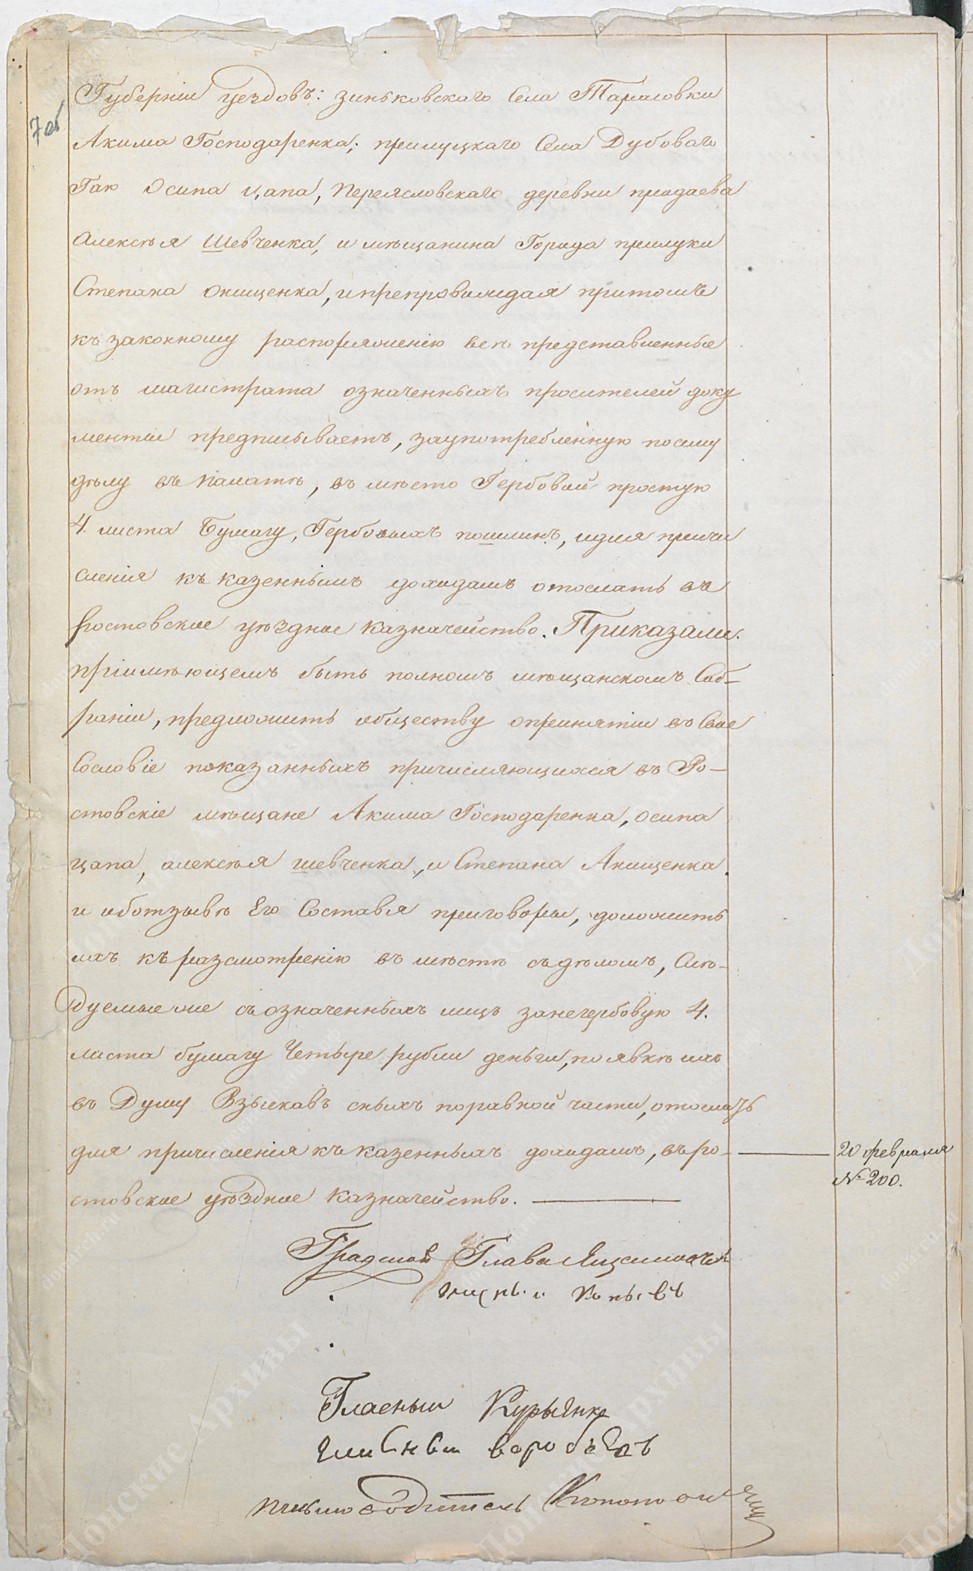 7об
Губерніи уездовъ: зиньковскаго Села Тарасовки
Акима Господаренка; прилуцкаго Села Дубоваго
Гаю Осипа Цапа, Переясловскаго деревни
Алексѣя Шевченка, и мѣщанина Города прилуки
Степана Онищенка, и препровождая притомъ
къ законному распоряженію всѣ представленные
отъ магистрата означенныхъ просителей доку
менты предписываетъ, заупотребленную посему
дѣлу въ палатѣ, въ мѣсто Гербовой простую
4 листа Бумагу, Гербовыхъ пошлинъ, идля причи
сленія къ казеннымъ доходамъ отослать въ
Ростовское уѣздное Казначейство. Приказали.
приимѣющемъ быть полномъ мѣщанскомъ Соб-
раніи, предложить обществу опринятіи въ Свое
Сословіе показанныхъ причисляющихся въ Ро-
стовскіе мѣщане Акима Господаренка, осипа
цапа, алексѣя шевченка, и Степана Анищенка
и оботзывѣ Его Составя приговоры, доложить
ихъ къ разсмотренію въ мѣстѣ съдѣломъ, Слѣ-
дуемые же съозначенныхъ лицъ занегербовую 4.
листа бумагу Четыре рубли деньги, по явкѣ ихъ
въ Думу Взыскавъ сныхъ поравной части, отослать
для причисленія къ казеннымъ доходамъ, въ ро-
стовское уѣздное Казначейство.
20 февраля
№ 200.
Градской Глава
Гласный
Гласный воробьевъ
письмоводитель
Донские Архивы